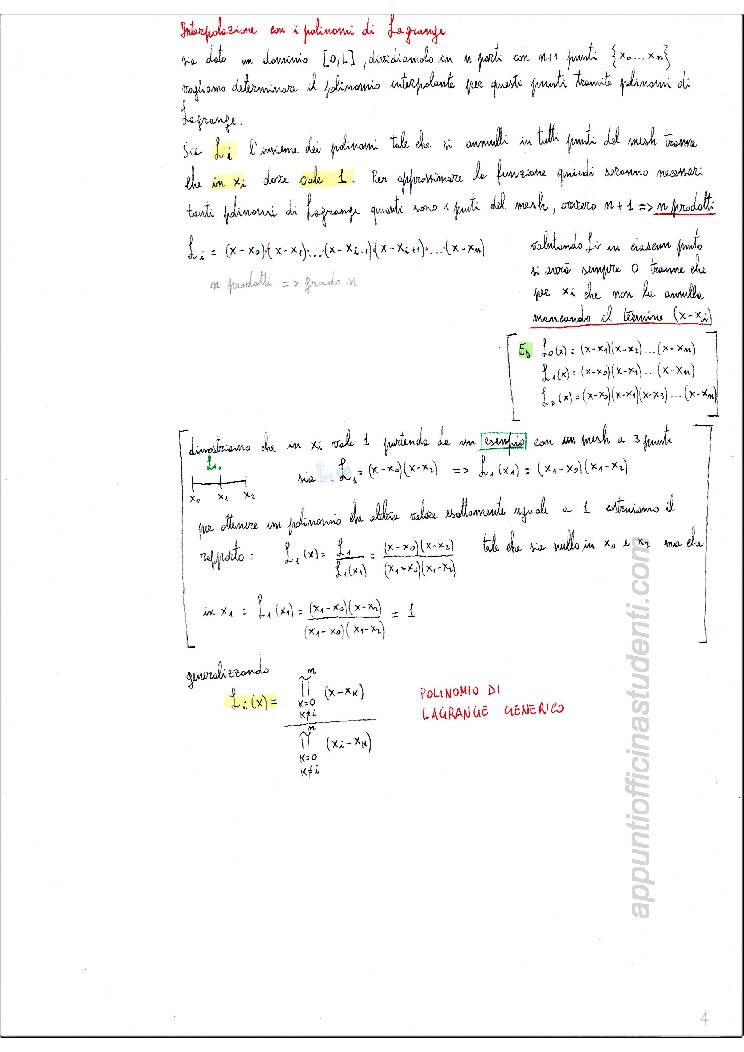 Interpolazione con i polinomi di Lagrange
sia dato un dominio [0,L], dividiamolo in n parti con n+1 punti {x₀...xₙ}
vogliamo determinare il polinomio interpolante per questi punti tramite polinomi di
Lagrange.
Sia ℒᵢ l'insieme dei polinomi tale che si annulli in tutti punti del mesh tranne
che in xᵢ dove vale 1. Per approssimare la funzione quindi saranno necessari
tanti polinomi di Lagrange quanti sono i punti del mesh, ovvero n+1 => n prodotti
ℒᵢ = (x-x₀)·(x-x₁)·...(x-xᵢ₋₁)·(x-xᵢ₊₁)·...(x-xₙ)
n prodotti => grado n
valutando ℒᵢ in ciascun punto
si avrà sempre 0 tranne che
per xᵢ che non la annulla
mancando il termine (x-xᵢ)
Es ℒ₀(x) = (x-x₁)(x-x₂)...(x-xₙ)
ℒ₁(x) = (x-x₀)(x-x₁)...(x-xₙ)
ℒ₂(x) = (x-x₀)(x-x₁)(x-x₃)...(x-xₙ)
dimostriamo che in xᵢ vale 1 partendo da un esempio con un mesh a 3 punti
ℒ₁
x₀ x₁ x₂
sia ℒ₁ = (x-x₀)(x-x₂) => ℒ₁(x₁) = (x₁-x₀)(x₁-x₂)
per ottenere un polinomio che abbia valore esattamente uguale a 1 costruiamo il
rapporto: ℒ₁(x) = ℒ₁/ℒ₁(x₁) = (x-x₀)(x-x₂)/(x₁-x₀)(x₁-x₂) tale che sia nullo in x₀ e x₂ ma che
in x₁ : ℒ₁(x₁) = (x₁-x₀)(x-x₂)/(x₁-x₀)(x₁-x₂) = 1
generalizzando
ℒᵢ(x) = ∏ⁿ K=0 K≠i (x-x_K) / ∏ⁿ K=0 K≠i (xᵢ-x_K)
POLINOMIO DI
LAGRANGE GENERICO
appuntiofficinastudenti.com
4